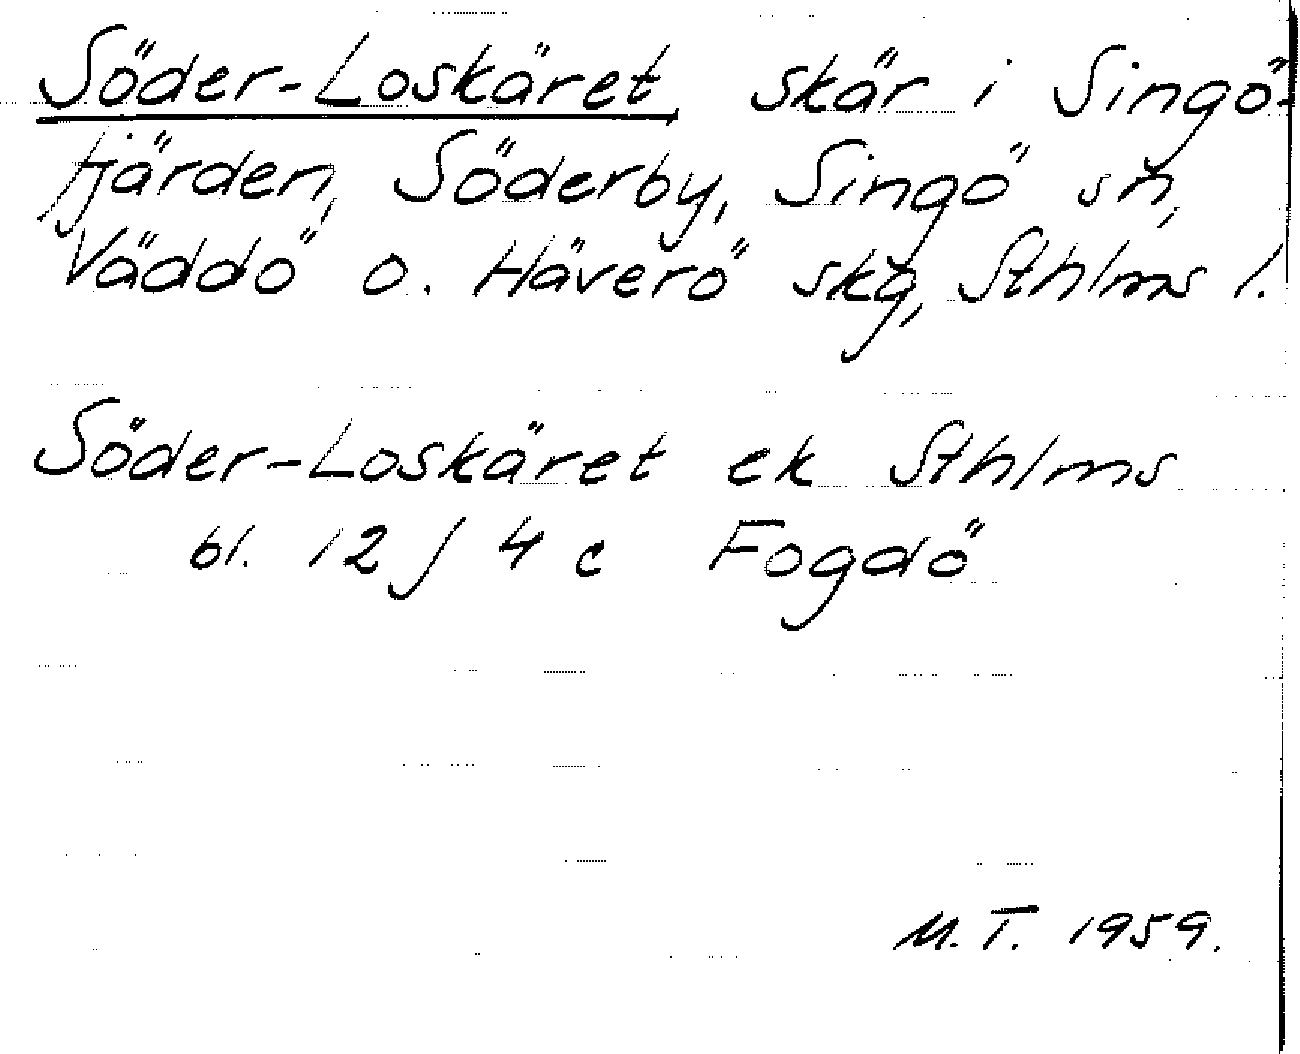 Söder-Loskäret, skär i Singö-
fjärden, Söderby, Singö sn,
Väddö o. Häverö skg, Sthlms l.
Söder-Loskäret ek Sthlms
bl. 12 J 4 c Fogdö
M.T. 1959.